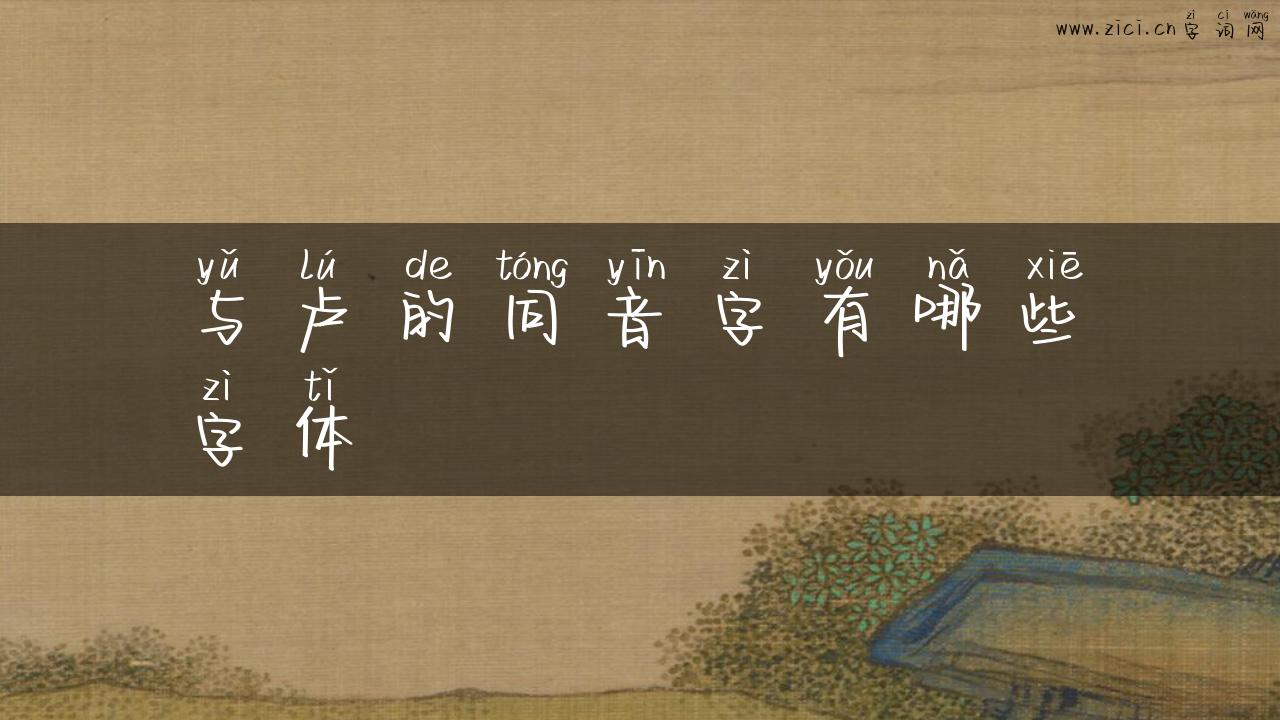 zì cí wǎng
www.zici.cn 字词网
yǔ lú de tóng yīn zì yǒu nǎ xiē
与卢的同音字有哪些
zì tǐ
字体